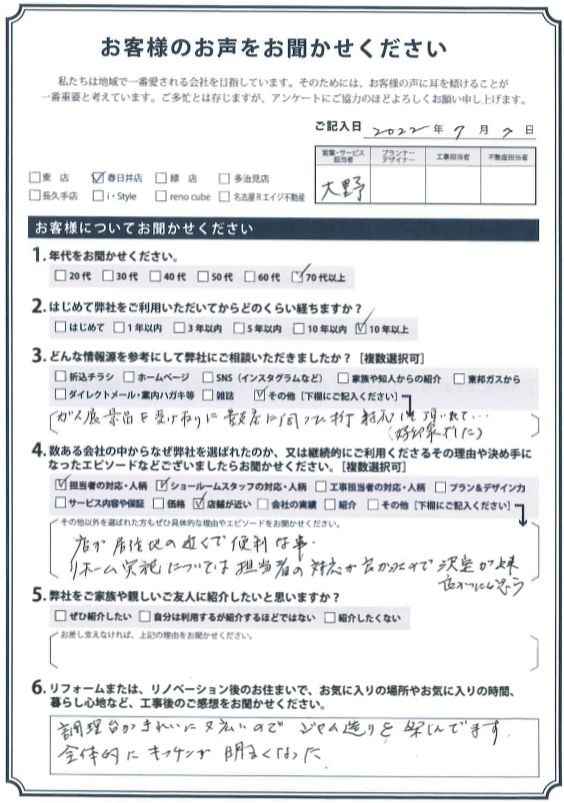 お客様のお声をお聞かせください
私たちは地域で一番愛される会社を目指しています。そのためには、お客様の声に耳を傾けることが
一番重要と考えています。ご多忙とは存じますが、アンケートにご協力のほどよろしくお願い申し上げます。
ご記入日 2022 年 7 月 2 日
営業・サービス担当者 プランナーデザイナー 工事担当者 不動産担当者
大野
□東 店 ☑春日井店 □緑 店 □多治見店
□長久手店 □i・Style □reno cube □名古屋Rエイジ不動産
お客様についてお聞かせください
1. 年代をお聞かせください。
□20代 □30代 □40代 □50代 □60代 ☑70代以上
2. はじめて弊社をご利用いただいてからどのくらい経ちますか？
□はじめて □1年以内 □3年以内 □5年以内 □10年以内 ☑10年以上
3. どんな情報源を参考にして弊社にご相談いただきましたか？［複数選択可］
□折込チラシ □ホームページ □SNS（インスタグラムなど） □家族や知人からの紹介 □東邦ガスから
□ダイレクトメール・案内ハガキ等 □雑誌 ☑その他［下欄にご記入ください］
ガス展景品を受け取りに
(好印象でした)
4. 数ある会社の中からなぜ弊社を選ばれたのか、又は継続的にご利用くださるその理由や決め手に
なったエピソードなどございましたらお聞かせください。［複数選択可］
☑担当者の対応・人柄 ☑ショールームスタッフの対応・人柄 □工事担当者の対応・人柄 □プラン＆デザイン力
□サービス内容や保証 □価格 ☑店舗が近い □会社の実績 □紹介 □その他［下欄にご記入ください］
その他以外を選ばれた方もぜひ具体的な理由やエピソードをお聞かせください。
店が居住地の近くで便利な事.
リホーム実施については担当者の対応が良かったので決定が出来
良かったと思う
5. 弊社をご家族や親しいご友人に紹介したいと思いますか？
□ぜひ紹介したい □自分は利用するが紹介するほどではない □紹介したくない
お差し支えなければ、上記の理由をお聞かせください。
6. リフォームまたは、リノベーション後のお住まいで、お気に入りの場所やお気に入りの時間、
暮らし心地など、工事後のご感想をお聞かせください。
調理台がきれいに又広いのでジャム造りを楽しんでます.
全体的にキッチンが明るくなった